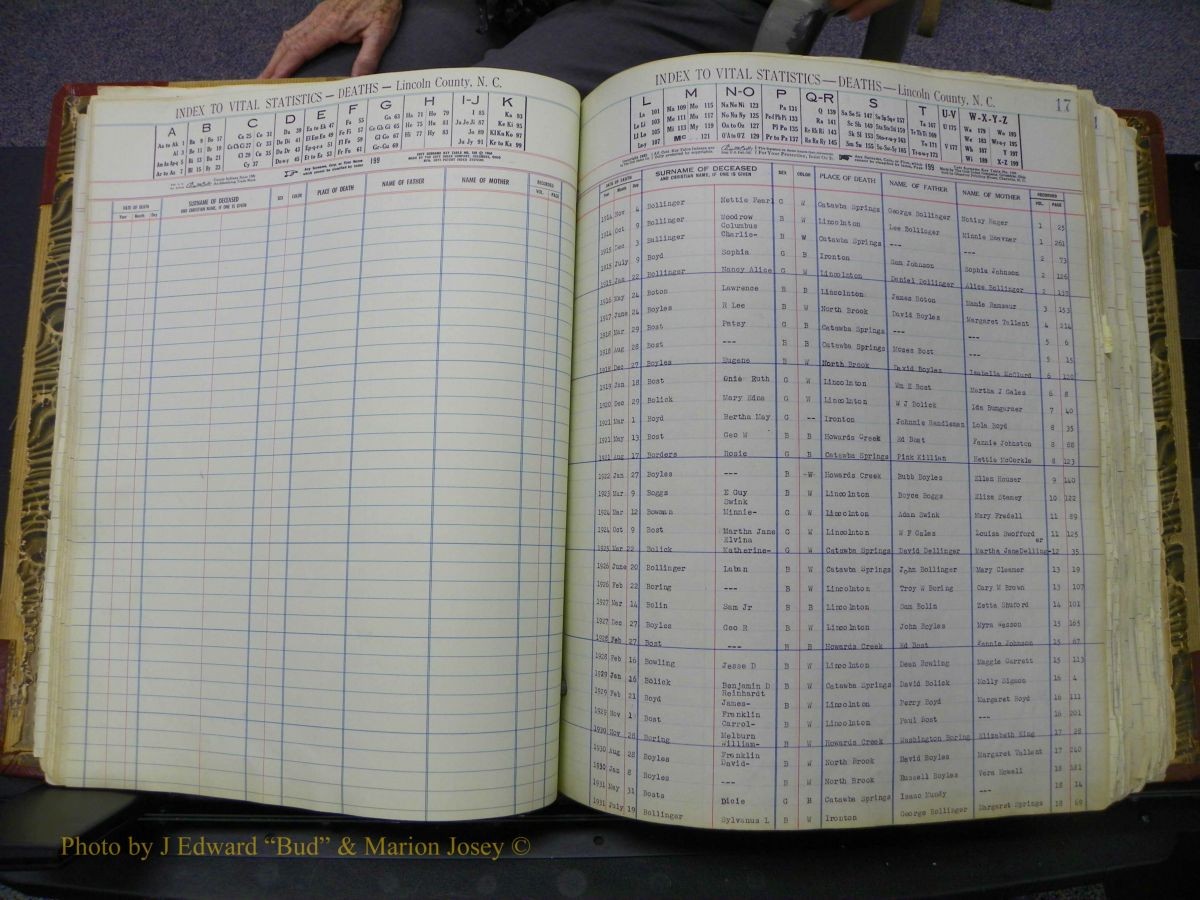 INDEX TO VITAL STATISTICS—DEATHS—Lincoln County, N. C.
A B C D E F G H I-J K
DATE OF DEATH
Year Month Day
SURNAME OF DECEASED
AND CHRISTIAN NAME, IF ONE IS GIVEN
SEX COLOR PLACE OF DEATH NAME OF FATHER NAME OF MOTHER RECORDED
VOL. PAGE
INDEX TO VITAL STATISTICS—DEATHS—Lincoln County, N. C. 17
L M N-O P Q-R S T U-V W-X-Y-Z
DATE OF DEATH
Year Month Day
SURNAME OF DECEASED
AND CHRISTIAN NAME, IF ONE IS GIVEN
SEX COLOR PLACE OF DEATH NAME OF FATHER NAME OF MOTHER RECORDED
VOL. PAGE
1914 Nov 4 Bollinger Nettie Pearl G W Catawba Springs George Bollinger Hager 1 25
1914 Oct 9 Bollinger Woodrow Columbus B W Lincolnton Lee Bollinger Minnie Heavner 1 261
1915 Dec 3 Charlie- B W Catawba Springs --- --- 2 73
1915 July 9 Boyd Sophia G B Ironton Sam Johnson Sophia Johnson 2 126
Jan 22 Bollinger Nancy Alice G W Lincolnton Daniel Bollinger Alice Bollinger 2
1916 May 24 Boton Lawrence B B Lincolnton James Boton Mamie Ramseur 3 153
1917 June 24 Boyles R Lee B W North Brook David Boyles Margaret Tallent 4 214
1918 Mar 29 Bost Patsy G B Catawba Springs --- --- 5 6
1918 Aug 28 Bost --- B B Catawba Springs Moses Bost --- 5 15
Dec 27 Boyles Eugene B W North Brook David Boyles Isabella McClurd 6
1919 Jan 18 Bost Onie Ruth G W Lincolnton Wm E Bost Martha J Gales 6 8
1920 Dec 29 Bolick Mary Edna G W Lincolnton W J Bolick Ida Bumgarner 7 40
1921 Mar 1 Boyd Bertha May G -- Ironton Johnnie Handleman Lola Boyd 8 35
1921 May 13 Bost Geo W B B Howards Creek Ed Bost Fannie Johnston 8 88
1921 Aug 17 Borders Rosie G B Catawba Springs Pink Killian Hettie McCorkle 8 123
1922 Jan 27 Boyles --- B -W- Howards Creek Bubb Boyles Ellen Houser 9 140
1923 Mar 9 Boggs E Guy B W Lincolnton Boyce Boggs Eliza Stamey 10 122
1924 Mar 12 Bowman Swink Minnie- G W Lincolnton Adam Swink Mary Fredell 11 89
1924 Oct 9 Bost Martha Jane G W Lincolnton W F Gales Louisa Swofford 11 125
1925 Mar 22 Bolick Elvina Katherine- G W Catawba Springs David Dellinger Martha JaneDelling-er 12 35
1926 June 20 Bollinger Laban B W Catawba Springs John Bollinger Mary Cleamer 13 19
1926 Feb 22 Boring --- B W Lincolnton Troy W Boring Cary M Brown 13 107
1927 Mar 14 Bolin Sam Jr B B Lincolnton Sam Bolin Zetta Shuford 14 101
1927 Dec 27 Boyles Geo R B W Lincolnton John Boyles Myra Wesson 15 165
1928 Feb 27 Bost --- B B Howards Creek Ed Bost Fannie Johnson 15 67
1928 Feb 16 Bowling Jesse D B W Lincolnton Dean Bowling Maggie Garrett 15 113
1929 Jan 16 Bolick Benjamin D B W Catawba Springs David Bolick Molly Sigmon 16 4
1929 Feb 21 Boyd Reinhardt James- B W Lincolnton Perry Boyd Margaret Boyd 16 111
1929 Nov 1 Bost Franklin Carrol- B W Lincolnton Paul Bost --- 16 201
1930 Nov 28 Boring Melburn William- B W Howards Creek Washington Boring Elizabeth King 17 28
1930 Aug 28 Boyles Franklin David- B W North Brook David Boyles Margaret Tallent 17 240
1930 Jan 8 Boyles --- B W North Brook Russell Boyles Vera Howell 18 181
1931 May 31 Bosts Dicie G B Catawba Springs Isaac Mundy --- 18 14
1931 July 19 Bollinger Sylvanus L B W Ironton George Bollinger Margaret Springs 18 69
Photo by J Edward “Bud” & Marion Josey ©